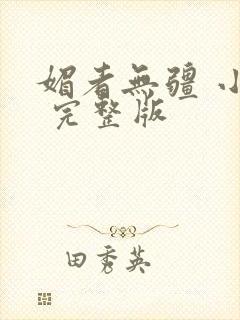 媚者無疆 小
完整版
田秀英